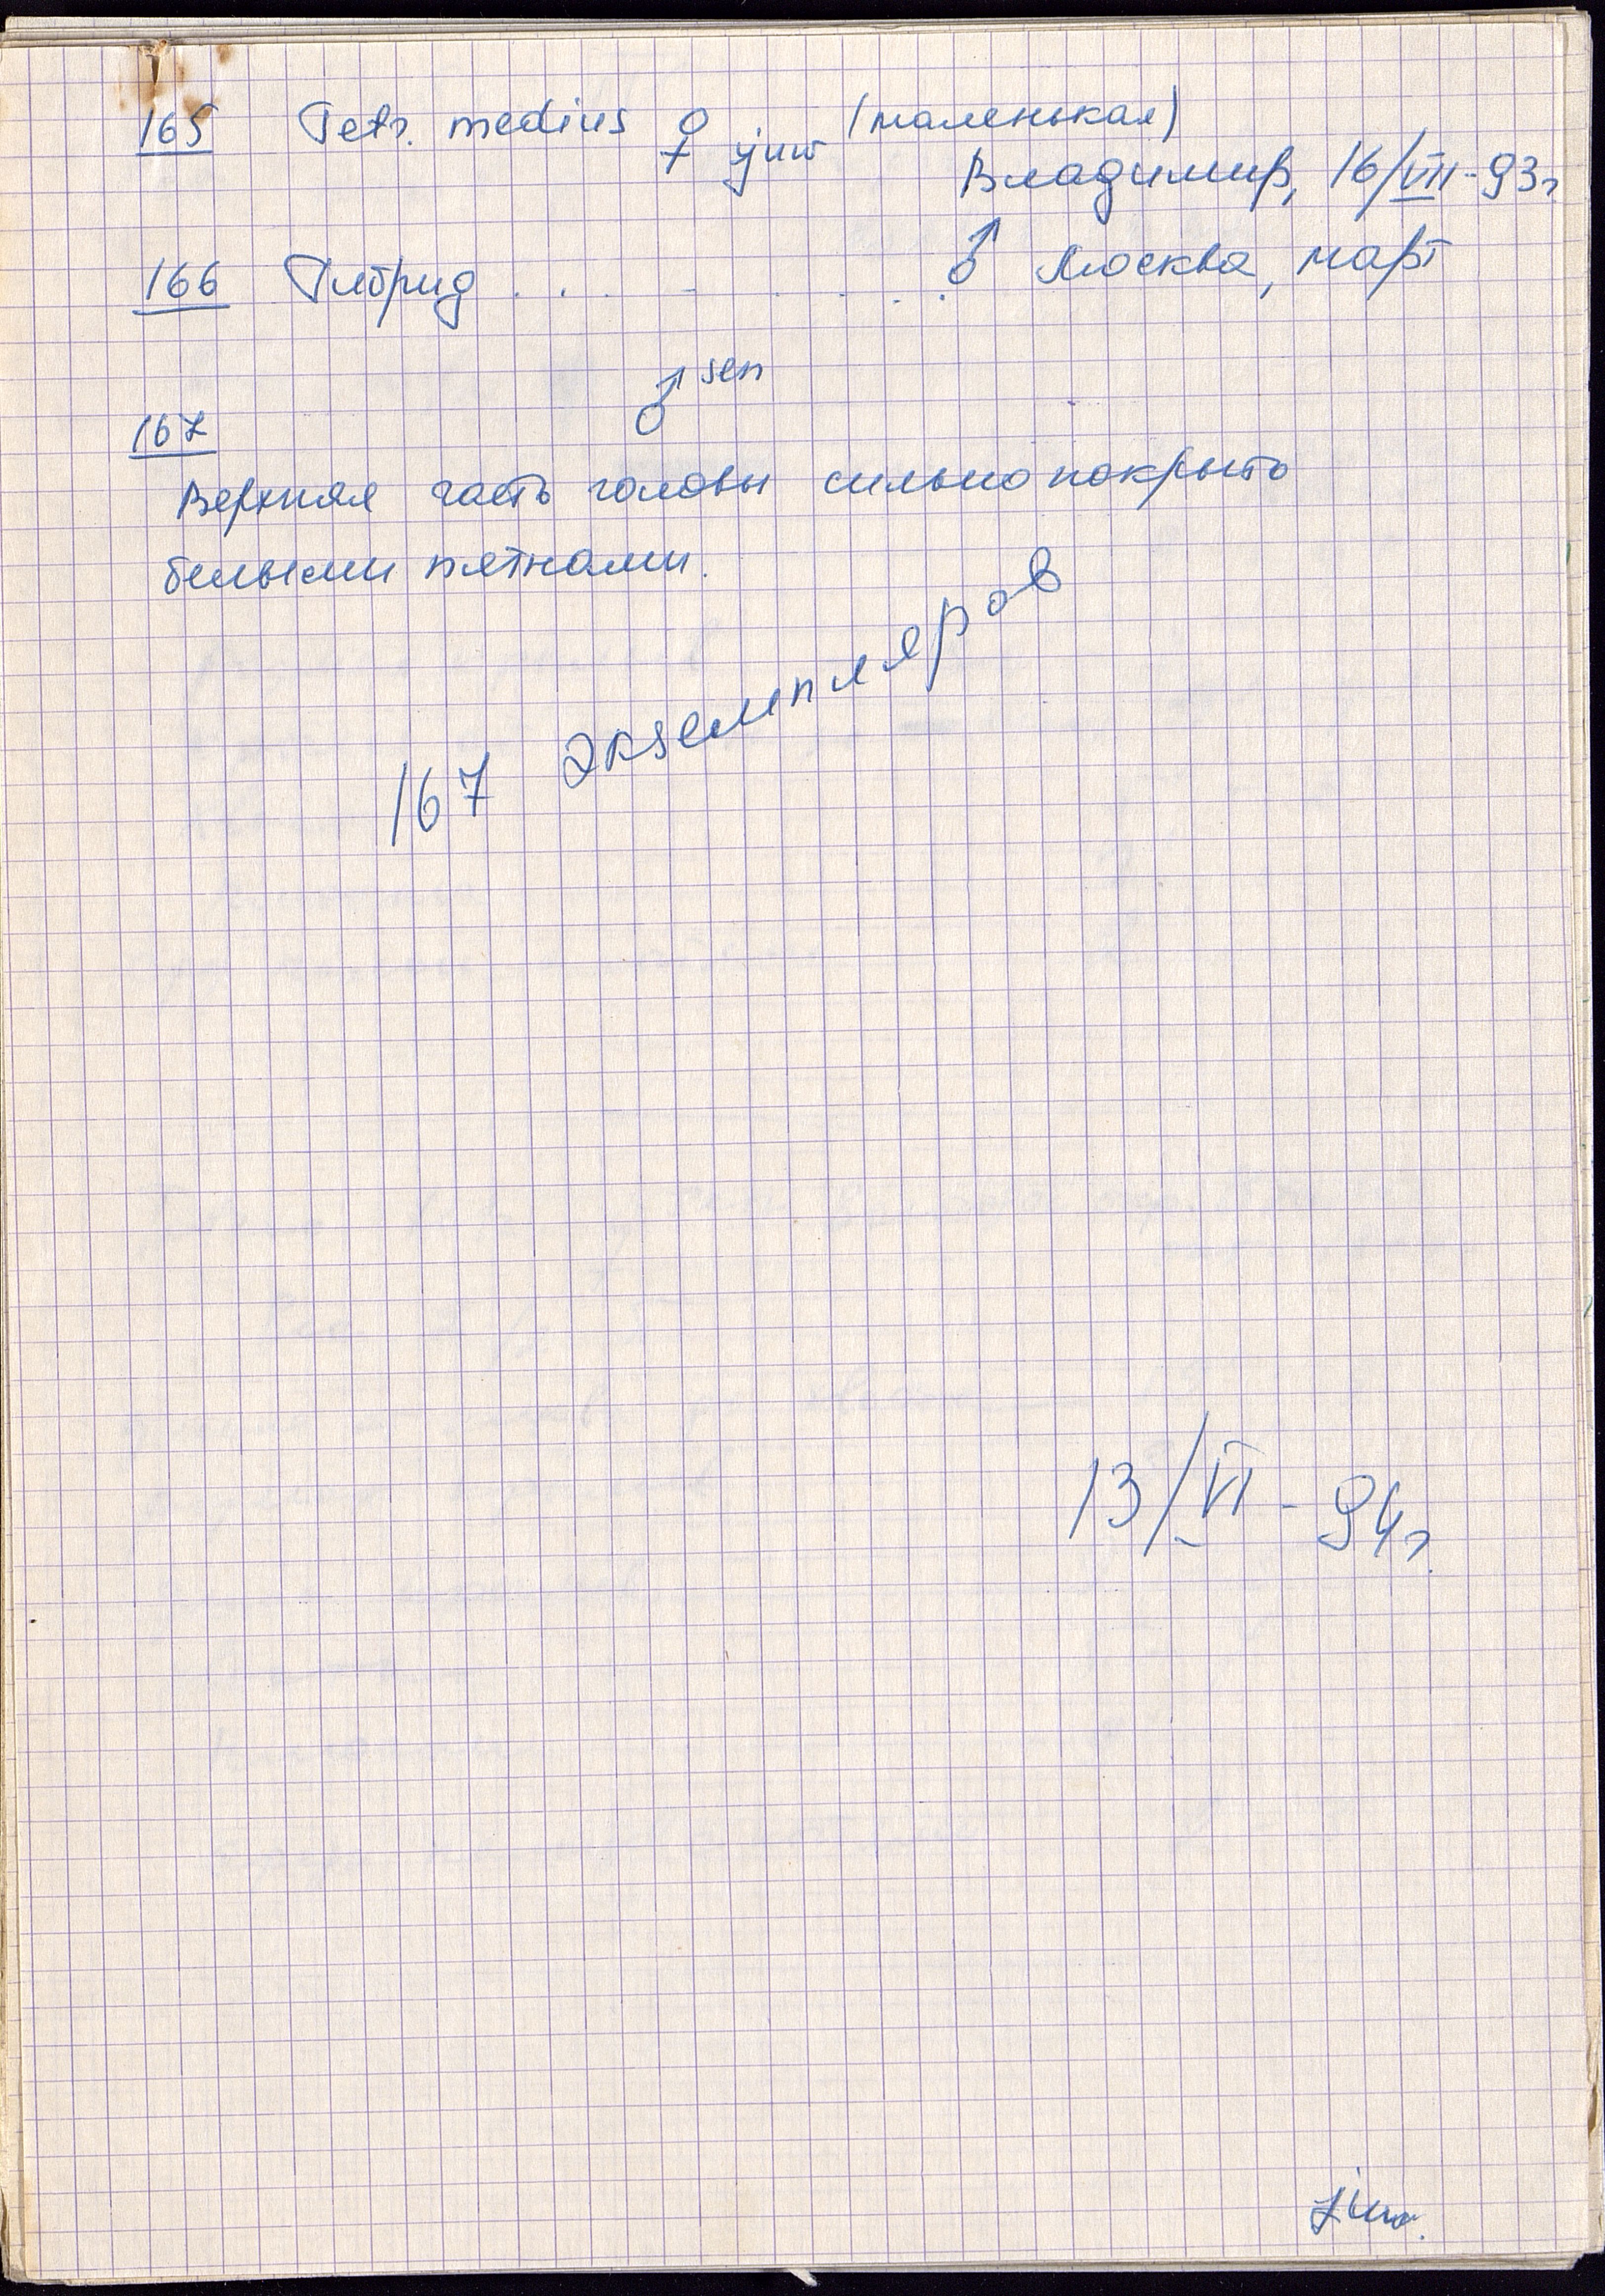 165 Tetr. medius ♀ juv (маленькая)
Владимир, 16/VII-93г
166 Гибрид . . . - . . . . ♂ Москва, март
♂ sen
167
Верхняя часть головы сильно покрыто
белыми пятнами.
167 экземпляров
13/VI - 94г.